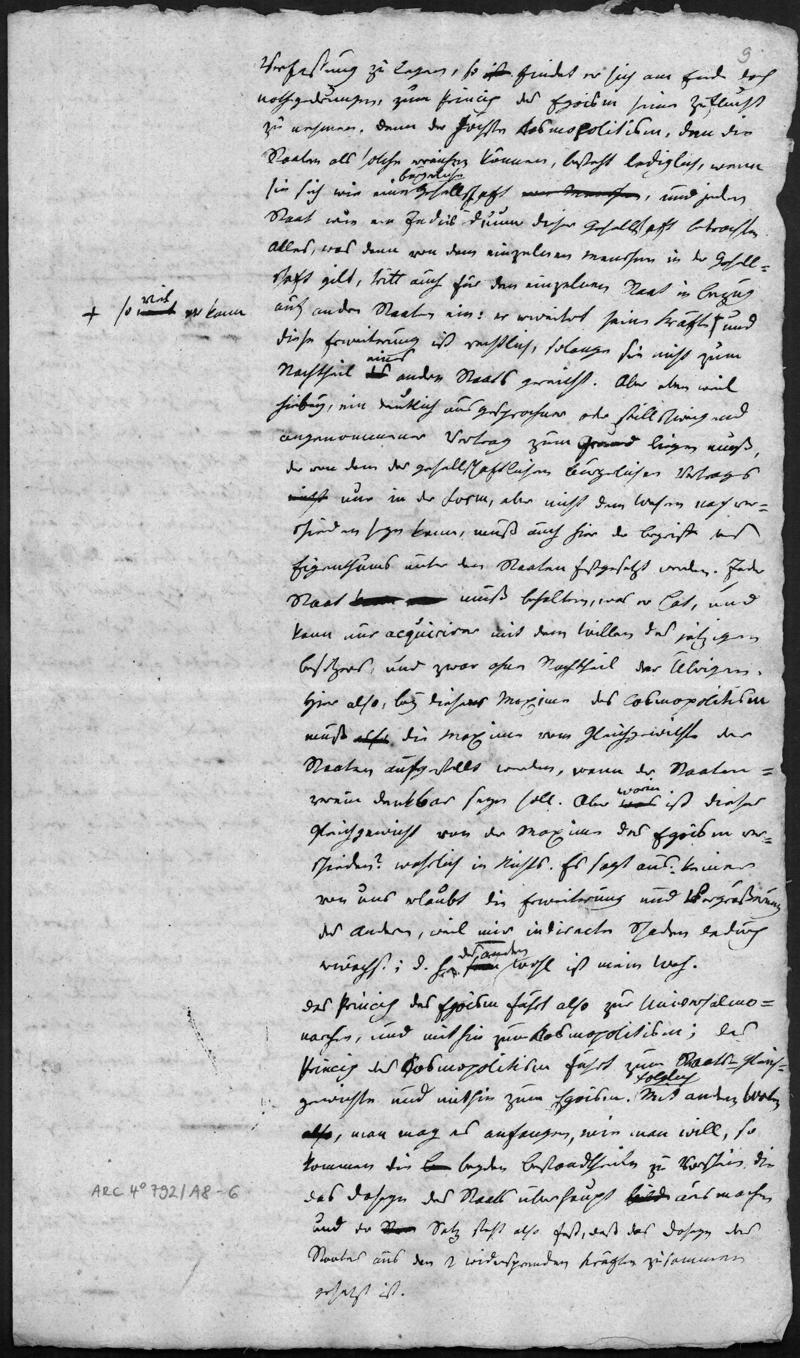 9
Verfassung zu legen, so ist findet er sich am Ende doch
nothgedrungen, zum Princip des Egoism seine Zuflucht
zu nehmen. Denn der höchste Cosmopolitism, dem die
Staaten als solche erreichen können, besteht lediglich, wenn
bürgerliche
sie sich wie eine Gesellschaft, und jeden
Staat wie ein Individuum dieser Gesellschaft betrachten.
Alles, was denn von dem einzelnen Menschen in der Gesell=
schaft gilt, tritt auch für den einzelnen Staat in bezug
viel
+ so er kann
auf andere Staaten ein: er erweitert seine Kräfte + und
diese Erweiterung ist rechtlich, solange sie nicht zum
eines
Nachtheil des andern Staats gereicht. Aber eben weil
hiebey, ein deutlich ausgesprochner oder stillschweigend
angenommener Vertrag zum Grund liegen muß,
der von dem des gesellschaftlichen bürgerlichen Vertrags
nicht nur in der Form, aber nicht dem Wesen nach ver=
schieden seyn kann, muß auch hier der Begriff des
Eigenthums unter den Staaten festgesetzt werden. Jeder
Staat muß behalten, was er hat, und
kann nur acquiriren mit dem Willen des jetzigen
Besitzers, und zwar ohne Nachtheil der Übrigen.
Hier also, bey dieser Maxime des Cosmopolitism
muß also die Maxime vom Gleichgewichte der
Staaten aufgestellt werden, wenn der Staaten=
worin
verein denkbar seyn soll. Aber was ist dieses
Gleichgewicht von der Maxime des Egoism ver=
schieden? wahrlich in Nichts. Es sagt aus: keiner
von uns erlaubt die Erweiterung und Vergrößerung
des Andern, weil mir indirecter Schaden dadurch
des andern
erwächst; d. h. Wohl ist mein Weh.
Das Princip des Egoism führt also zur Universalmo=
narchie, und mithin zum Cosmopolitism; das
Princip des Cosmopolitism führt zum Staats=Gleich=
folglich
gewichte und mithin zum Egoism. Mit andern Worten
also, man mag es anfangen, wie man will, so
kommen die beyden Bestandtheile zu Vorschein, die
das Daseyn des Staats überhaupt ausmachen
und der Satz steht also fest, daß das Daseyn des
Staates aus den 2 widerstrebenden Kräften zusammen
gesetzt ist.
ARC 4° 792/A8-6